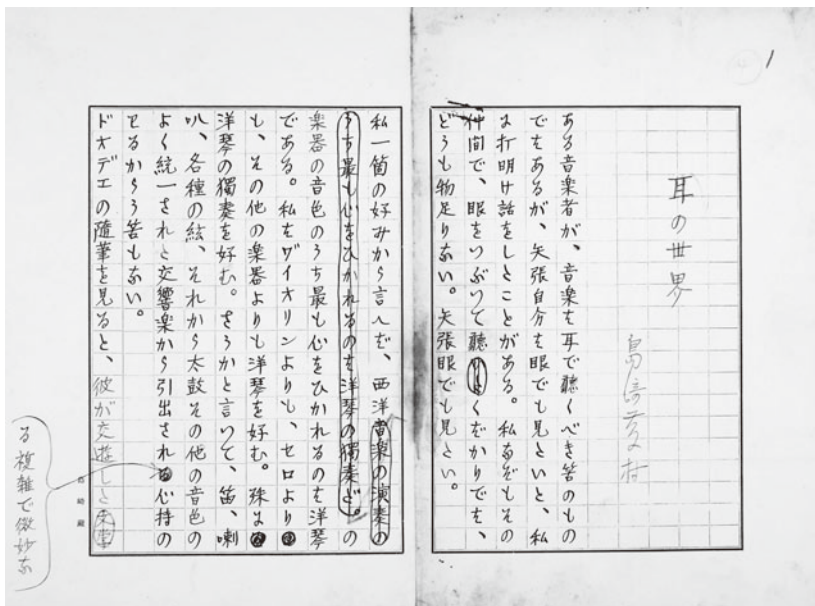 1
耳の世界
島崎藤村
ある音楽者が、音楽を耳で聴くべき筈のもの
ではあるが、矢張自分は眼でも見たいと、私
に打明け話をしたことがある。私なぞもその
仲間で、眼をつぶつて聴くばかりでは、
どうも物足りない。矢張眼でも見たい。
私一箇の好みから言へば、西洋音楽の演奏の
うち最も心をひかれるのは洋琴の獨奏だ。の
楽器の音色のうち最も心をひかれるのは洋琴
である。私はヷイオリンよりも、セロより
も、その他の楽器よりも洋琴を好む。殊に
洋琴の獨奏を好む。さうかと言つて、笛、喇
叭、各種の絃、それから太鼓その他の音色の
よく統一された交響楽から引出される心持の
る複雑で微妙な
わるからう筈もない。
ドオデエの随筆を見ると、彼が交遊した文学
島崎蔵